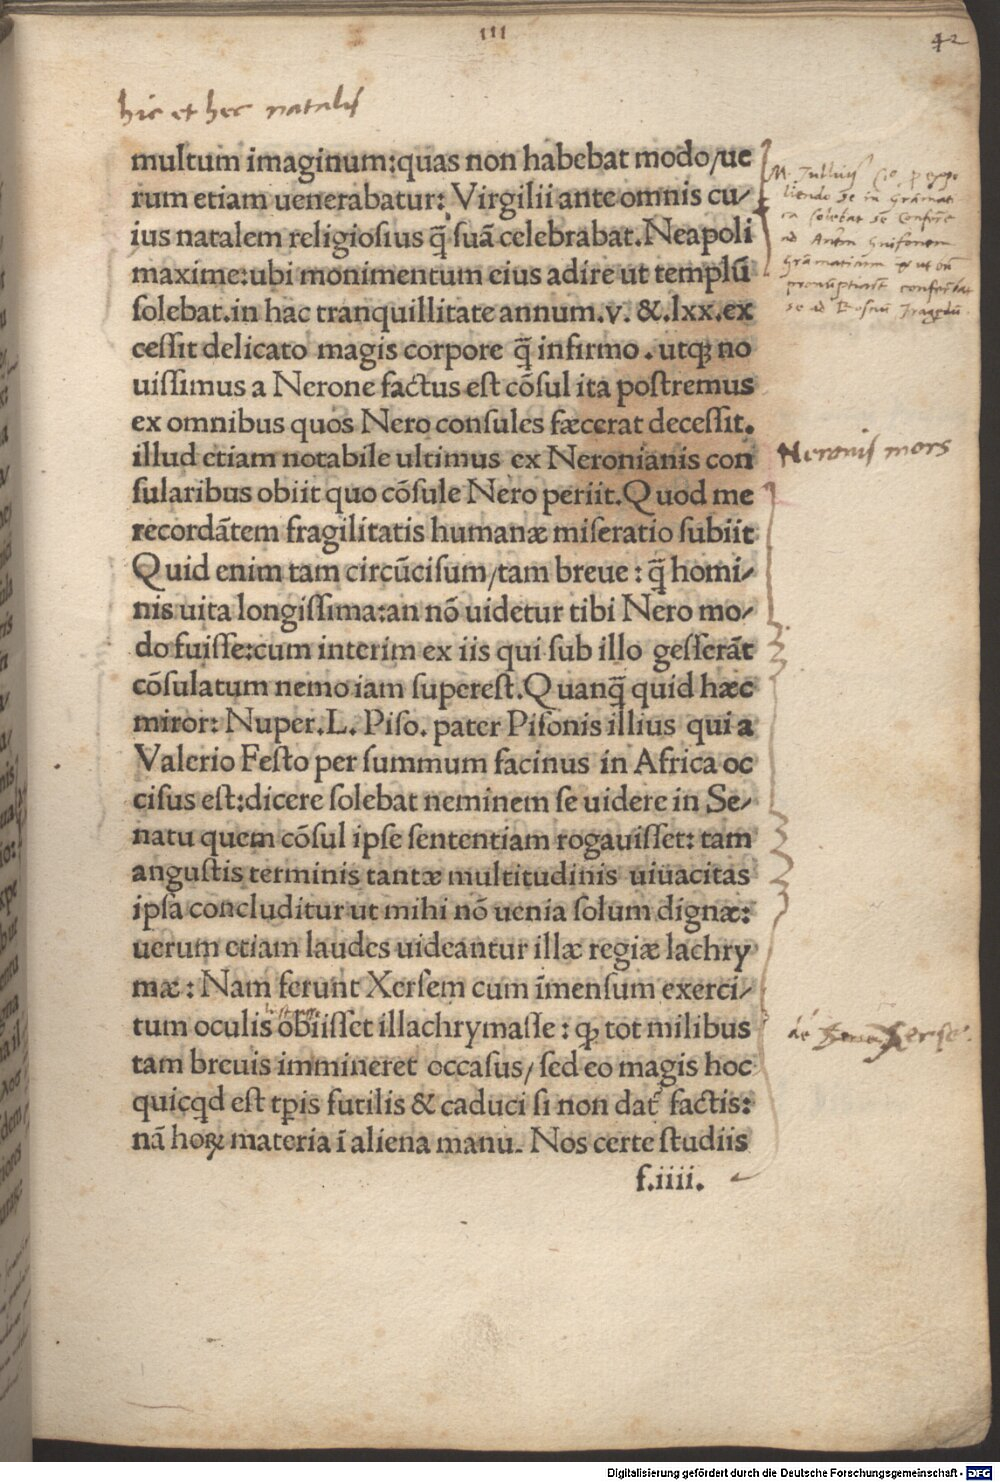 III
42
hic et hec natalis
multum imaginum:quas non habebat modo/ue
rum etiam uenerabatur: Virgilii ante omnis cu/
ius natalem religiosius q̄ suā celebrabat.Neapoli
maxime:ubi monimentum eius adire ut templū
solebat.in hac tranquillitate annum.v. &.lxx.ex
cessit delicato magis corpore q̄ infirmo . utqꝫ no
uissimus a Nerone factus est cōsul ita postremus
ex omnibus quos Nero consules fæcerat decessit.
illud etiam notabile ultimus ex Neronianis con
sularibus obiit quo cōsule Nero periit.Quod me
recordātem fragilitatis humanæ miseratio subiit
Quid enim tam circūcisum/tam breue : q̄ homi/
nis uita longissima:an nō uidetur tibi Nero mo/
do fuisse:cum interim ex iis qui sub illo gesserāt
cōsulatum nemo iam superest.Quanq̄ quid hæc
miror: Nuper.L. Piso. pater Pisonis illius qui a
Valerio Festo per summum facinus in Africa oc
cisus est:dicere solebat neminem se uidere in Se/
natu quem cōsul ipse sententiam rogauisset: tam
angustis terminis tantæ multitudinis uiuacitas
ipsa concluditur ut mihi nō uenia solum dignæ:
uerum etiam laudes uideantur illæ regiæ lachry
mæ : Nam ferunt Xersem cum īmensum exerci/
tum oculis obiisset illachrymasse : ꝙ tot milibus
tam breuis immineret occasus/ sed eo magis hoc
quicqd est tꝑis futilis & caduci si non datʳ factis:
nā hoꝝ materia ī aliena manu. Nos certe studiis
f.iiii.
M. Tullius Cic.
se in Gramati
ca solebat se
ad
se ad
Neronis mors
de Xerse.
Digitalisierung gefördert durch die Deutsche Forschungsgemeinschaft - DFG